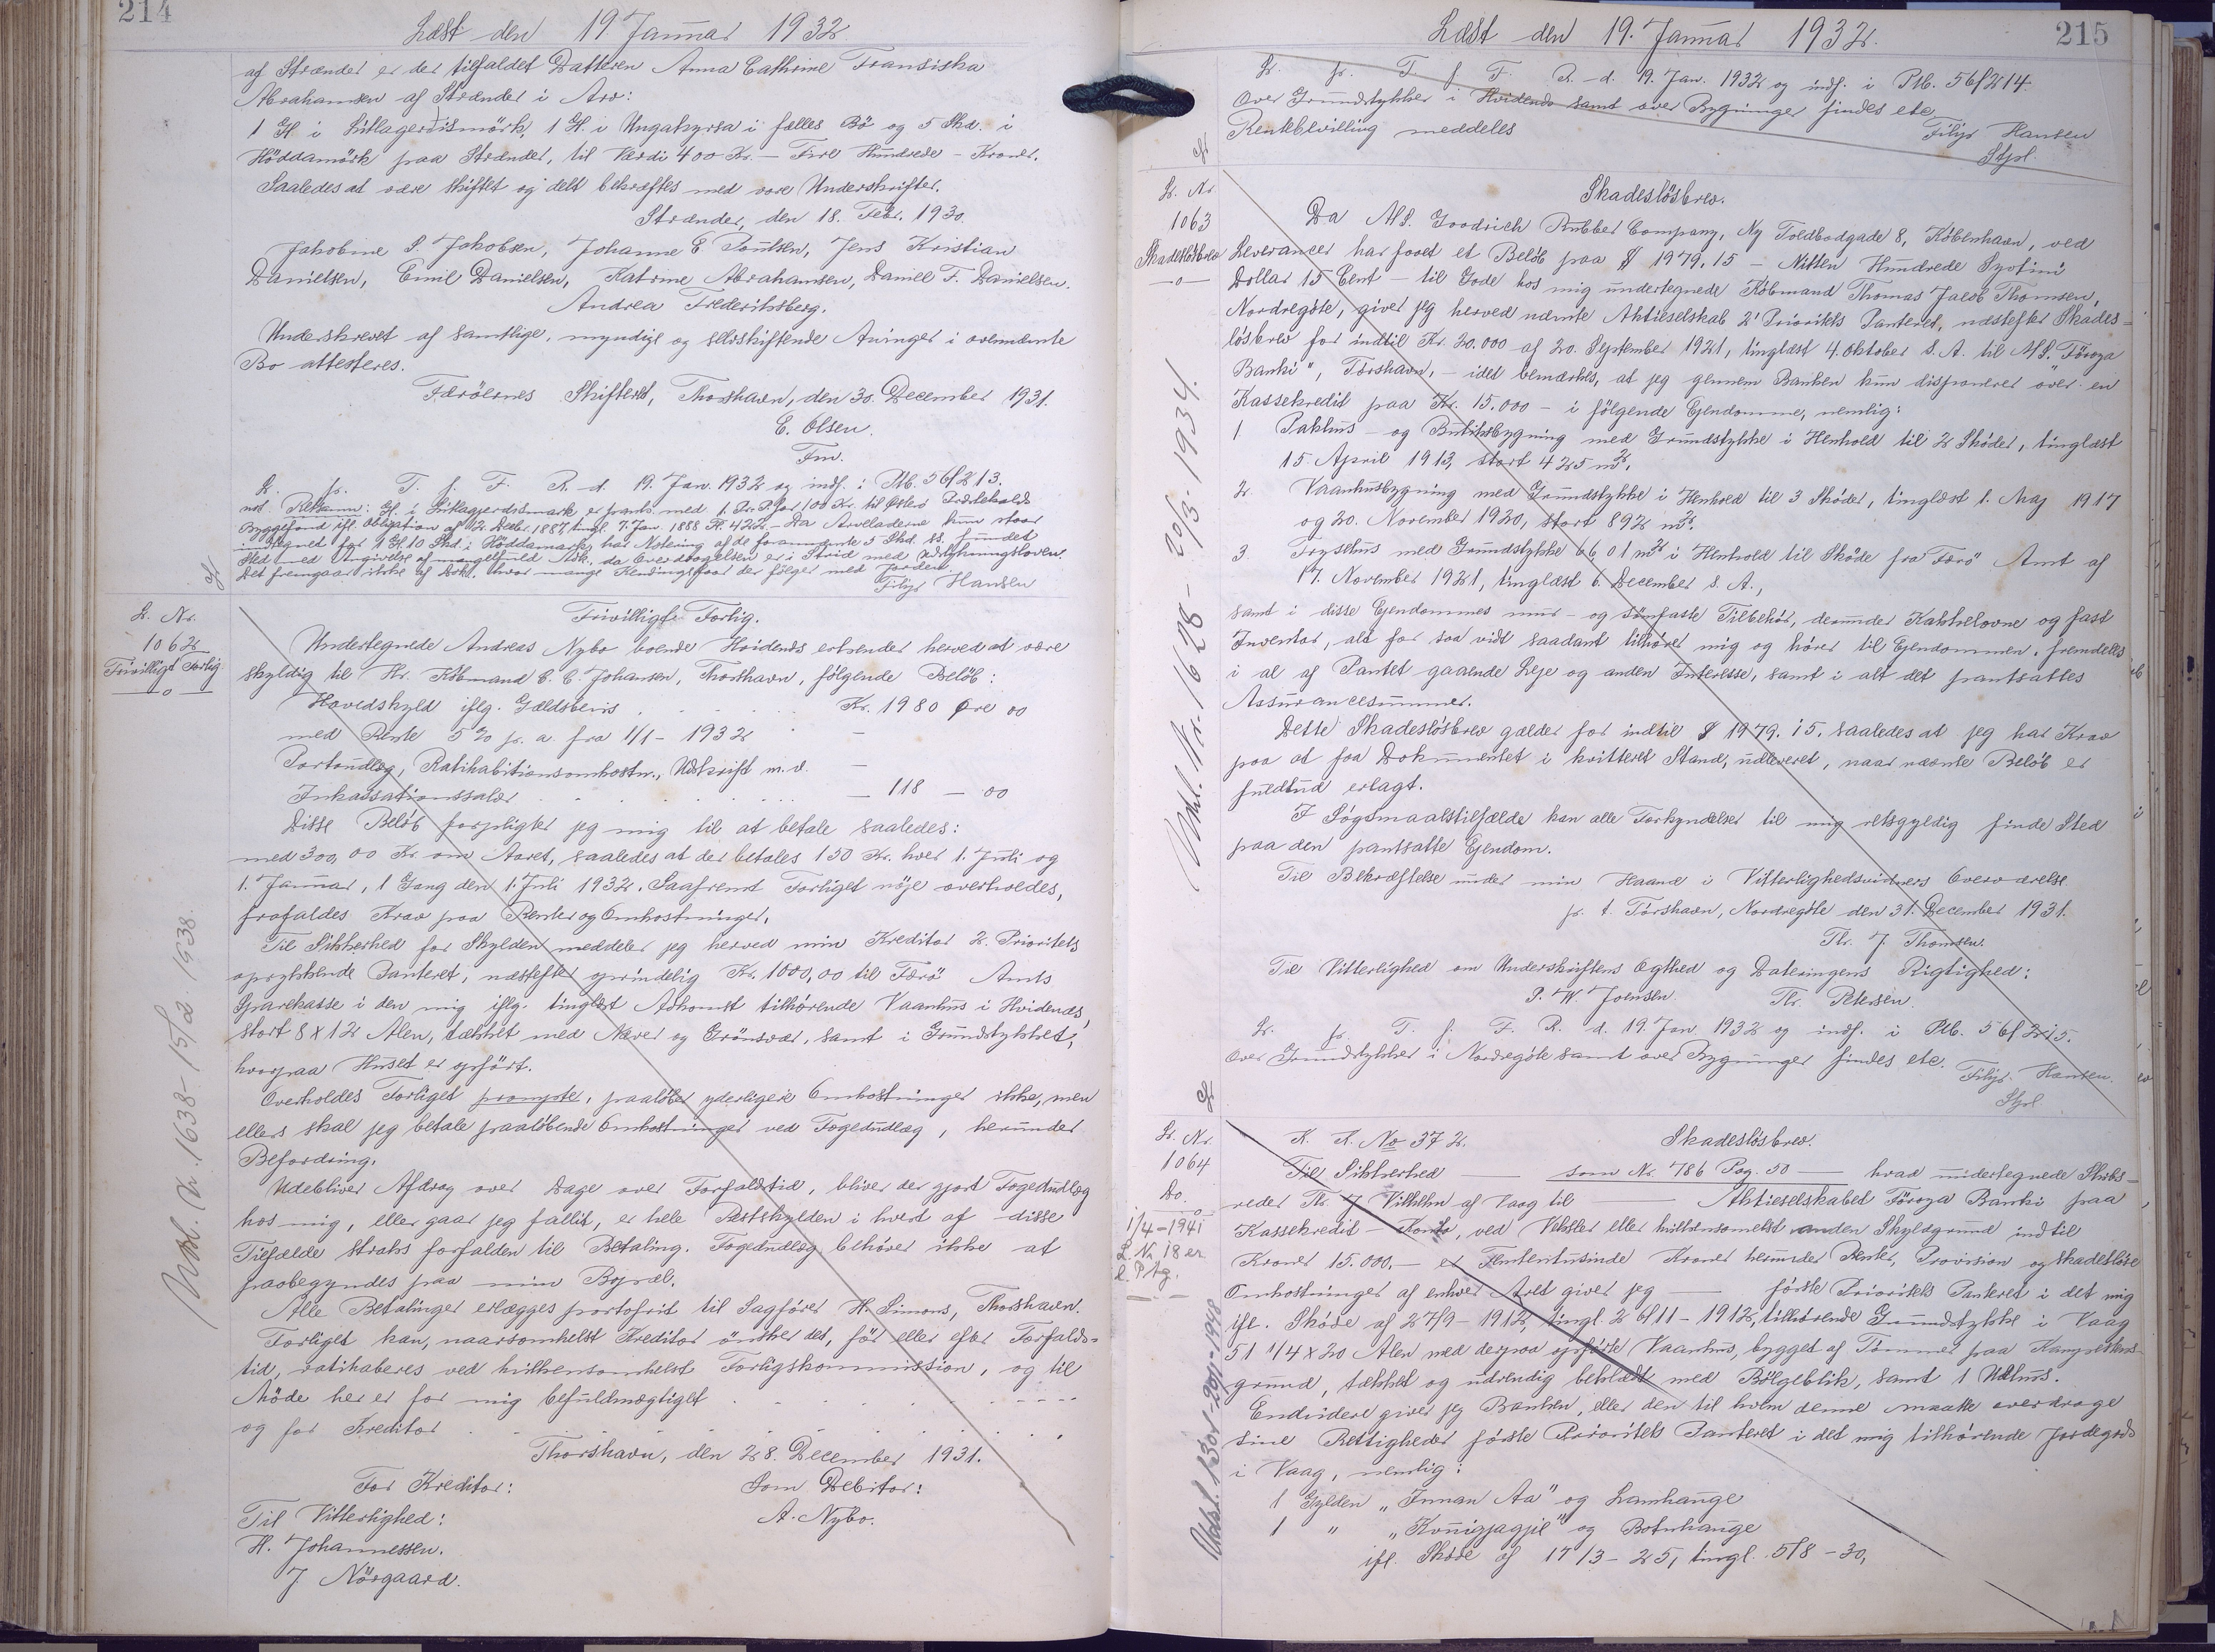 214
Læst den 19. Januar 1932
af Strænder er der tilfaldet Datteren Anna Cathrine Fransiska
Abrahamsen af Strænder i Arv:
1 G. i Litlagerdismörk, 1 G. i Ungakyrsa i fælles Bö og 5 Skd. i
Höddamörk paa Strænder, til Værdi 400 Kr. — Fire Hundrede – Kroner.
Saaledes at være skiftet og delt bekræftes med vore Underskrifter.
Strænder, den 18. Febr. 1930.
Jakobine S. Jakobsen, Johanne E Poulsen, Jens Kristian
Danielsen, Emil Danielsen, Katrine Abrahamsen, Daniel F. Danielsen.
Andrea Frederiksberg.
Underskrevet af samtlige, myndige og selvskiftende Arvinger i ovennævnte
Bo attesteres.
Færöernes Skifteret, Thorshavn, den 30. December 1931.
E. Olsen.
Fm.
L. p. T. f. F. R. d. 19. Jan. 1932 og indf. i Ptb. 56/213.
Byggefond ifl. Obligation af 12. Decbr. 1887, tingl. 7. Jan. 1888 – Da Arveladerne kun staar
i Regnet for 1 G. 10 Skd. i Höddamark, har Notering af de forannævnte 5 Skd. fundet
Sted med Angivelse af mangelfuld Adk., da Overdragelsen er i Strid med Udstykningsloven.
Det fremgaar ikke af Dok., hvor mange Kendingsfaar der følger med Jorden.
Filip Hansen
L. Nr.
1062
Frivilligt Forlig.
Frivilligt Forlig.
Undertegnede Andreas Nybo boende Hvidenæs erkender herved at være
skyldig til Hr. Købmand C. C. Johansen, Thorshavn, følgende Beløb:
Hovedskyld iflg. Gældsbevis Kr. 1980 Øre 00
med Rente 5 % p. a. fra 1/1 – 1932
Portoudlæg, Ratihabitionsomkostn., Udskrift m.v.
Inkassationssalær — 118 — 00
Disse Beløb forpligter jeg mig til at betale saaledes:
med 300,00 Kr. om Aaret, saaledes at der betales 150 Kr. hver 1. Juli og
1. Januar, 1 Gang den 1. Juli 1932. Saafremt Forliget nøje overholdes,
frafaldes Krav paa Renter og Omkostninger.
Til Sikkerhed for Skylden meddeler jeg herved min Kreditor 2. Prioritets
oprykkende Panteret, næstefter oprindelig Kr. 1000,00 til Færö Amts
Sparekasse i den mig iflg. tinglæst Adkomst tilhørende Vaanhus i Hvidenæs,
stort 8 x 12 Alen, tækket med Næver og Grönsvær, samt i Grundstykket,
hvorpaa Huset er opført.
Overholdes Forliget prompte, paaløber yderligere Omkostninger ikke, men
ellers skal jeg betale paaløbende Omkostninger ved Fogedudlæg, herunder
Befordring.
Udebliver Afdrag over Dage over Forfaldstid, bliver der gjort Fogedudlæg
hos mig, eller gaar jeg fallit, er hele Restskylden i hvert af disse
Tilfælde straks forfalden til Betaling. Fogedudlæg behöver ikke at
paabegyndes paa min Bopæl.
Alle Betalinger erlægges portofrit til Sagfører H. Simons, Thorshavn.
Forliget kan, naarsomhelst Kreditor ønsker det, för eller efter Forfalds-
tid, ratihaberes ved hvilkensomhelst Forligskommission, og til
Møde her er for mig befuldmægtiget
og for Kreditor
Thorshavn, den 28. December 1931.
For Kreditor: Som Debitor:
Til Vitterlighed: A. Nybo.
H. Johannessen.
J. Nörgaard.
Udsl. Nr. 1638 – 15/2. 1938.
215
Læst den 19. Januar 1932.
L. p. T. f. F. R. d. 19. Jan. 1932 og indf. i Ptb. 56/214.
Over Grundstykker i Hvidenæs samt over Bygninger findes etc
Rentebevilling meddeles Filip Hansen
Stpl.
L. Nr
1063
Skadesløsbrev
Skadesløsbrev.
Da A/S. Goodrich Rubber Company, Ny Toldbodgade 8, København, ved
Leverancer har faaet et Beløb paa $ 1979,15 – Nitten Hundrede Syvtini
Dollar 15 Cent – til Gode hos mig undertegnede Købmand Thomas Jacob Thomsen,
Nordregöte, giver jeg herved nævnte Aktieselskab 2' Prioritets Panteret, næstefter Skades-
løsbrev for indtil Kr. 20.000 af 20. September 1921, tinglæst 4. Oktober s. A. til A/S. Föroya
Banki", Tórshavn, – idet bemærkes, at jeg gennem Banken kun disponerer over en
Kassekredit paa Kr. 15.000 – i følgende Ejendomme, nemlig:
1. Pakhus – og Butiksbygning med Grundstykke i Henhold til 2 Skøder, tinglæst
15. April 1913, stort 425 m².
2. Vaanhusbygning med Grundstykke i Henhold til 3 Skøder, tinglæst 1. Maj 1917
og 20. November 1920, stort 892 m².
3. Frysehus med Grundstykke 6601 m² i Henhold til Skøde fra Færö Amt af
17. November 1921, tinglæst 6. December s. A.,
samt i disse Ejendommes mur – og sömfaste Tilbehör, derunder Kakkelovne og fast
Inventar, alt for saa vidt saadant tilhører mig og hører til Ejendommen, fremdeles
i al af Pantet gaaende Leje og anden Interesse, samt i alt det pantsattes
Assurancesummer.
Dette Skadesløsbrev gælder for indtil $ 1979.15. saaledes at jeg har Krav
paa at faa Dokumentet i kvitteret Stand, udleveret, naar nævnte Beløb er
fuldtud erlagt.
I Søgsmaalstilfælde kan alle Forkyndelser til mig retsgyldig finde Sted
paa den pantsatte Ejendom.
Til Bekræftelse under min Haand i Vitterlighedsvidners Overværelse.
p. t. Tórshavn, Nordregöte den 31. December 1931.
Th. J. Thomsen.
Til Vitterlighed om Underskriftens Ægthed og Dateringens Rigtighed:
P. W. Joensen. Th. Petersen.
L. p. T. f. F. R. d. 19. Jan. 1932 og indf. i Ptb. 56/215.
Over Grundstykker i Nordregöte samt over Bygninger findes etc. Filip. Hansen.
Stpl.
Udsl. Nr. 1628 – 20/3. 1934.
L. Nr.
1064
Do.
1/4 – 1941
L. Nr 18 er
K. K. No 372. Skadesløsbrev.
Til Sikkerhed —— som Nr. 786 Pag. 50 —— hvad undertegnede Skibs-
reder Th. J Vilhelm af Vaag til —— Aktieselskabet Föroya Banki paa
Kassekredit – Konto, ved Veksler eller hvilkensomhelst anden Skyldgrund indtil
Kroner 15.000.— er Femtentusinde Kroner herunder Renter, Provision og skadesløse
Omkostninger af enhver Art giver jeg —— første Prioritets Panteret i det mig
ifl. Skøde af 27/9 – 1912, tingl. 26/11 – 1912, tilhørende Grundstykke i Vaag
51 1/4 x 20 Alen med derpaa opførte Vaanhus, bygget af Tömmer paa Kampestens-
grund, tækket og udvendig beklædt med Bölgeblik, samt 1 Udhus.
Endvidere giver jeg Banken, eller den til hvem denne maatte overdrage
sine Rettigheder første Prioritets Panteret i det mig tilhørende Jordegods
i Vaag, nemlig:
1 Gylden „Innan Aa" og Lamhauge
1 " og Botnhauge
ifl. Skøde af 17/3 – 25, tingl. 5/8 – 30,